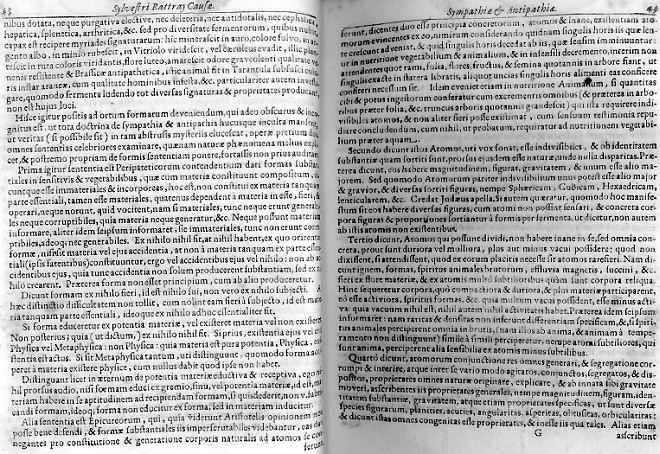 48 Sylvestri Rattray Causæ
nibus dotata, neque purgativa elective, nec deleteria, nec antidotalis, nec cephalica,
hepatica, splenetica, arthritica, &c. sed pro diversitate fermentorum, quibus nubit,
capax est recipere myriades signaturarum: hic minerascit in auro, colore fulvo, in ar-
gento albo, in nitro rubeido, in Vitriolo viridescit, vel cœruleus evadit, ille plan-
tescit in rutâ coloris viridantis, flore luteo, amarescit odore graveolenti qualitate ve-
nenis resistente & Brassicæ antipathetica,
ris instar araneæ, cum qualitate hominibus infesta, &c. particulariter autem investi-
gare, quomodo fermenta ludendo tot diversas signaturas & proprietates producant,
non est hujus loci.
Hisce igitur positis ad ortum formarum deveniendum, qui adeo obscurus & inco-
gnitus est, ut tota doctrina de sympathia & antipathia hucusque incerta manserit,
ut veritas (si possibile sit) in tam abstrusis mysteriis elucescat, operæ pretium duxi
omnes sententias celebriores examinare, quænam naturæ phænomena melius expli-
cet, & postremo propriam de formis sententiam ponere, forsassis non prius auditam.
Prima igitur sententia est Peripateticorum contendentium dari formas substantia-
les, in sensitivis & vegetabilibus, quæ cum materia constituunt compositum, quæ-
cunque esse immateriales & incorporeas, hoc est, non constitui ex materia tanquam
parte essentiali, tamen esse materiales, quatenus dependent à materia in esse, fieri, &
operari, neque norunt, quid vocitent, nam si materiales, tunc neque erunt generabi-
les neque corruptibiles, quia materia neque generatur, &c. Neque possunt materiam
informare, aliter idem seipsum informaret, sic immateriales, tunc non erunt corru-
ptibiles, adeoq; nec generabiles. Ex nihilo nihil fit, at nihil habent, ex quo oriretur
formæ, nisi sit materia vel ejus accidentia, at non à materia tanquam ex parte essen-
tiali (ipsis fatentibus) constituuntur, ergo vel accidentibus ejus vel nihilo: non ab ac-
cidentibus ejus, quia tunc accidentia non solum producerent substantiam, sed ex ni-
hilo crearent. Præterea forma non esset principium, cum ab alio produceretur.
Dicunt formam ex nihilo fieri, id est nihilo sui, non vero ex nihilo subjecti. At
hæc distinctio difficultatem non tollit, cum nolint eam fieri à subjecto, id est mate-
ria tanquam parte essentiali, ideoque ex nihilo adhuc essentialiter sit.
Si forma educeretur ex potentia materiæ, vel existeret materia vel non existeret.
Non posterius (quia (ut dictum,) ex nihilo nihil fit. Si prius, existentia ejus vel est
Physica vel Metaphysica: non Physica: quia materia est pura potentia, Physica, exi-
stentis est actus. Si sit Metaphysica tantum, uti distinguunt, quomodo forma acci-
peret à materia existere physice, cum nullus dabit quod ipse non habet.
Distinguunt licet in æternum de potentia materiæ eductiva & receptiva, ego ni-
hil prorsus audio, nisi formam educi ex gremio, sinu, vel potentia materiæ, id est, ma-
teriam habere in se aptitudinem ad recipiendam formam, si quis dederit, non v. dabit
eandi formam, ideoq; forma non educitur ex forma, sed in materiam inducitur.
Alia sententia est Epicureorum, qui, quia viderunt Aristotelis opinionem non
posse bene defendi, & formæ substantiales iis imperscrutabiles videbantur, eas dari
negantes pro constitutione & generatione corporis naturalis ad atomos se con-
Sympathiæ & Antipathiæ. 49
ferunt, dicentes duo esse principia concretorum, atomos & inane, existentiam ato-
morum evincentes ex eo, nimirum considerando quidnam singulis horis iis quæ len-
te crescunt adveniat, & quid singulis horis decedat ab iis, quæ lensim minuuntur,
ut in nutritione vegetabilium & animalium, & in insensili decremento, interim non
attendentes quot rami, folia, flores, fructus, & semina quotannis in arbore fiant, ut
singulis exacte in statera libratis, aliquot uncias singulis horis alimenti eas conficere
consiteri necessum sit. Idem eveniet etiam in nutritione Animalium, si quantitas
cibi & potus ingestorum conferatur cum excrementis omnibus (& præterea in arbo-
ribus præter folia, &c. truncus arboris quotannis grandescat) qui ista requirere indi-
visibiles atomos, & non aliter fieri posse existimat, cum sensuum testimonia repu-
diare concludendum, cum nihil, ut peobatum, requiratur ad nutritionem vegetabi-
lium præter aquam.
Secundo dicunt istos Atomos, uti vox sonat, esse indivisibiles, & ob identitatem
substantiæ quam sortiti sunt, prorsus ejusdem esse naturæ, unde nulla disparitas. Præ-
terea dicunt, eos habere magnitudinem, figuram, gravitatem, & unum esse alio ma-
jorem. Sed quomodo Atomorum pariter indivisibilium unus potest esse alio major
& gravior, & diversas sortiri figuras, nempe Sphæricam, Cubicam, Hexaedricam,
lenticularem, &c. Credat Judæus apella. Si autem quæratur, quomodo hoc manife-
stum sit eos habere diversas figuras, cum atomi non possint sensari, & concreta cor-
pora figuras & proportiones sortiantur à formis per fermenta, ut dicetur, non autem
ab istis atomis non existentibus.
Tertio dicunt, Atomos qui possunt dividi, non habere inane in se, sed omnia con-
creta, prout sunt duriora vel molliora, plus aut minus vacui possidere: quod non
dixissent, si attendissent, quod ex eorum placitis necesse sit atomos rarefieri. Nam di-
cunt ignem, formas, spiritus animales brutorum, effluvia magnetis, succini, &c.
fieri ex flore materiæ, & ex atomis multò subtilioribus quàm sunt corpora reliqua.
Hinc sequeretur corpora, quo compactiora & duriora, & plus materiæ participant,
eò esse activiora, spiritus formas, &c. quia multum vacui possident, esse minus acti-
va: quia vacuum nihil est, nihil autem nihil activitatis habet. Præterea idem seipsum
informaret: nam raritas & densitas non inferunt differentiam specificam, &, si spiri-
tus animales perciperent omnia in brutis, (nam illos ab anima, & animam à tempe-
ramento non distinguunt,) simile à simili perciperetur, neque atomi subtiliores, qui
sunt anima, perciperent alia sensibilia ex atomis minus subtilibus.
Quartò dicunt, atomorum conjunctione res omnes generari, & segregatione cor-
rumpi & interire, atque inter se vario modo agitatos, conjunctos, segregatos, & dis-
positos, proprietates omnes naturæ originare, explicare, & ab innata sibi gravitate
moveri, asserentes iis proprietates generales, nempe magnitudinem, figuram, iden-
titatem substantiæ, gravitatem, atque etiam proprietates specificas, ut sunt diversæ
species figurarum, planities, acuties, angularitas, asperitas, obtusitas, orbicularitas:
& dicunt istas omnes congenitas esse proprietates, & inesse iis qua tales. Alias etiam
G
ascribunt